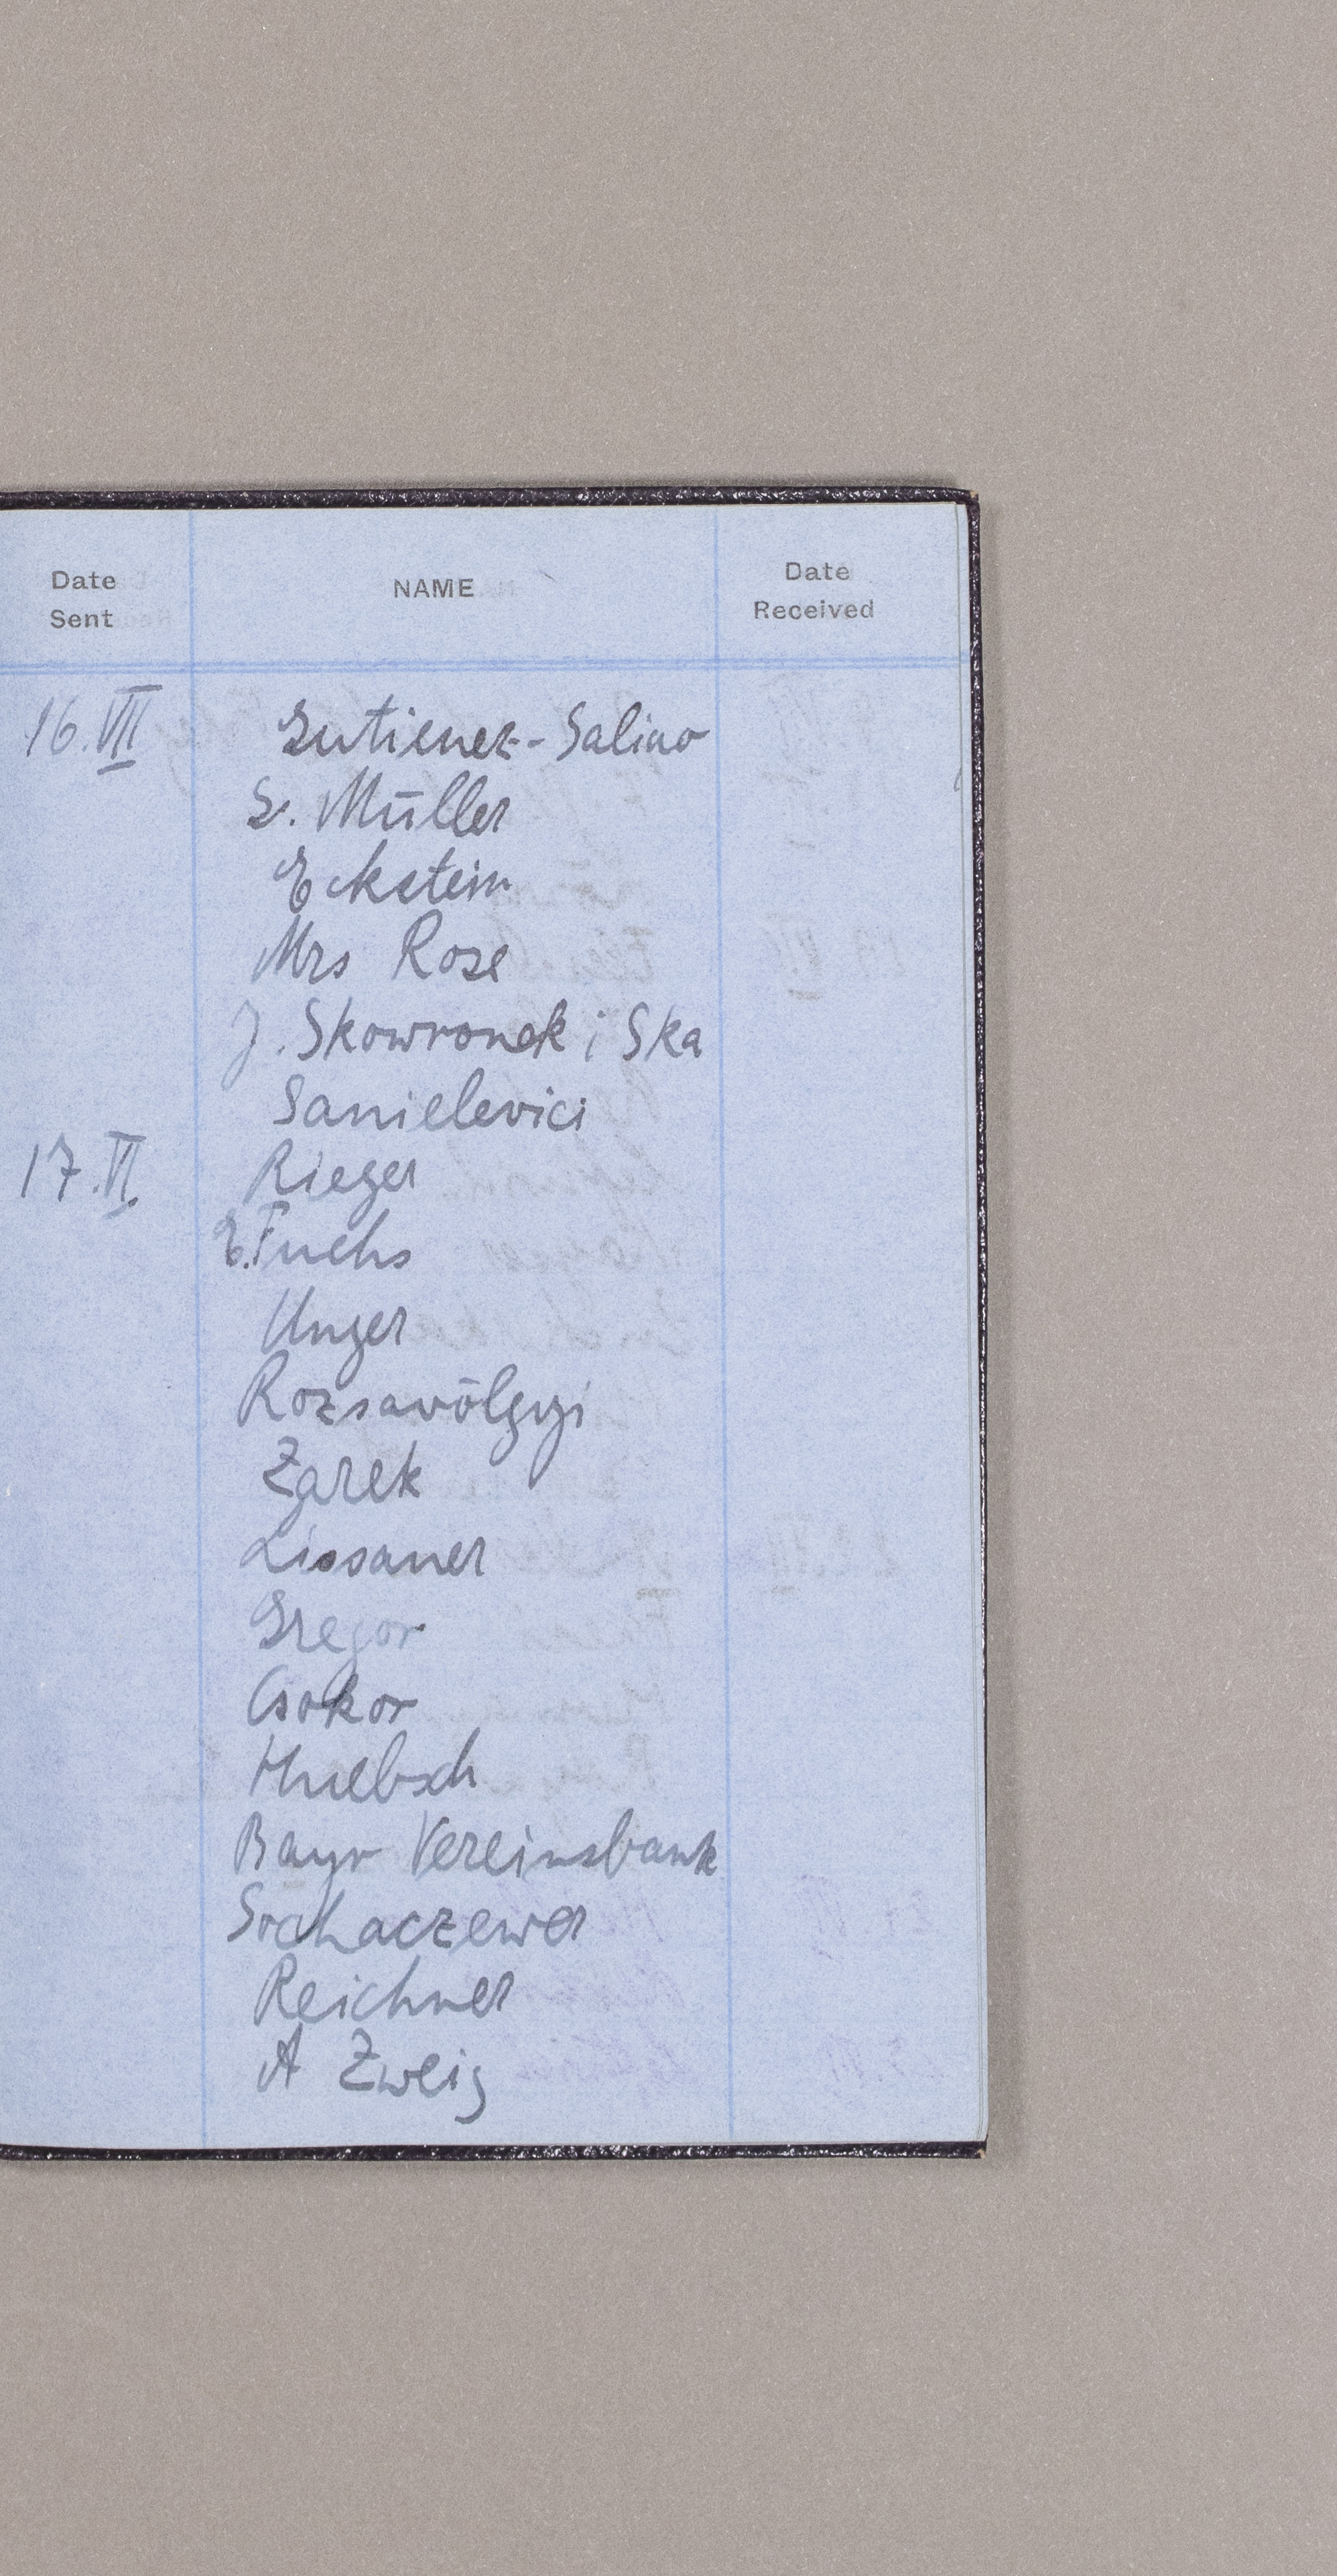 Date Sent NAME Date Received
16.VII Gutierrez-Salino
G. Müller
Eckstein
Mrs Rose
J. Skowronek i Ska
Sanielevici
17.VI. Rieger
E. Fuchs
Unger
Rozsavölgyi
Zarek
Lissauer
Gregor
Csokor
Huebsch
Bayr Vereinsbank
Sochaczewer
Reichner
A Zweig